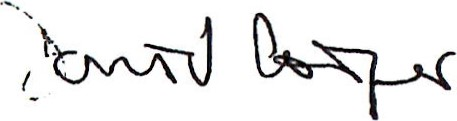 David Cooper